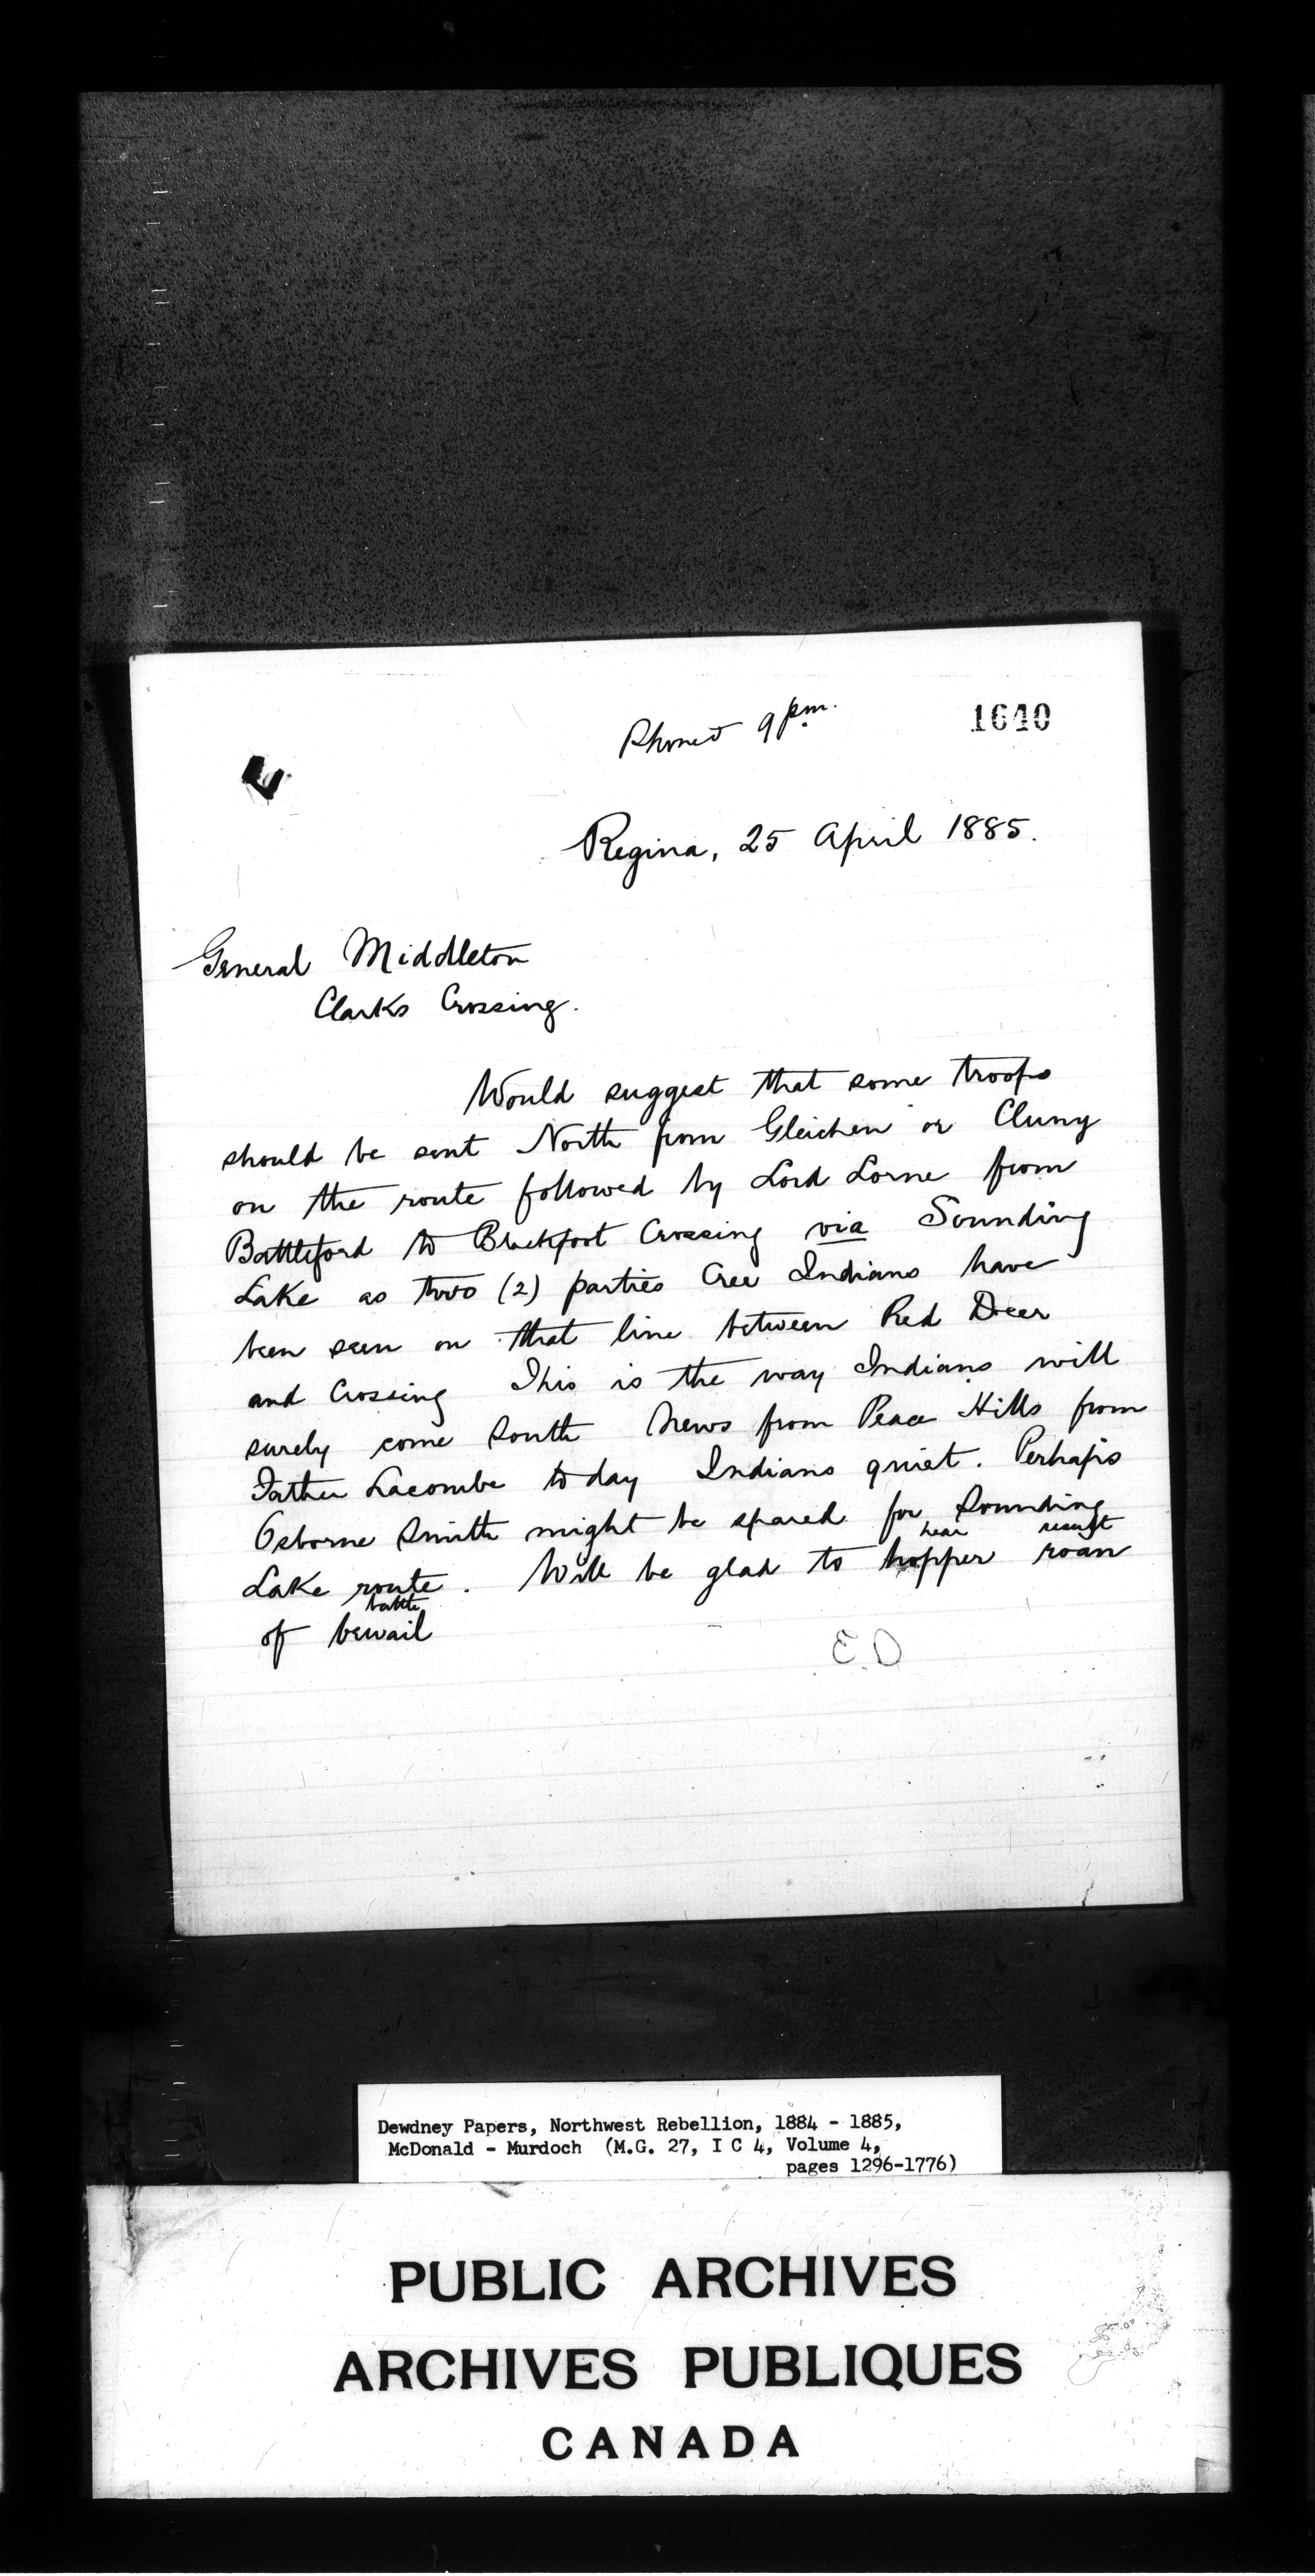 Phoned 9 pm.
1640
Regina, 25 April 1885.
General Middleton
Clarks Crossing.
Would suggest that some troops
should be sent North from Gleichen or Cluny
on the route followed by Lord Lorne from
Battleford to Blackfoot Crossing via Sounding
Lake as two (2) parties Cree Indians have
been seen on that line between Red Deer
and Crossing This is the way Indians will
surely come South News from Peace Hills from
Father Lacombe to day Indians quiet. Perhaps
Osborne Smith might be spared for Sounding
hear result
Lake route. Will be glad to hopper roan
battle
of bewail
E.D
Dewdney Papers, Northwest Rebellion, 1884 - 1885,
McDonald - Murdoch (M.G. 27, I C 4, Volume 4,
pages 1296-1776)
PUBLIC ARCHIVES
ARCHIVES PUBLIQUES
CANADA